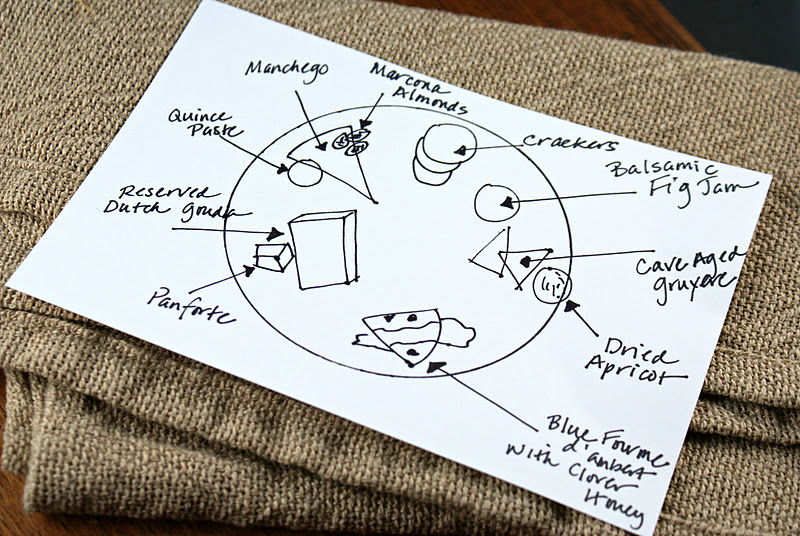 Manchego
Marcona
Almonds
Quince
Paste
Crackers
Balsamic
Fig Jam
Reserved
Dutch gouda
Cave Aged
gruyere
Panforte
Dried
Apricot
Blue Fourme
d'ambert
with Clover
Honey